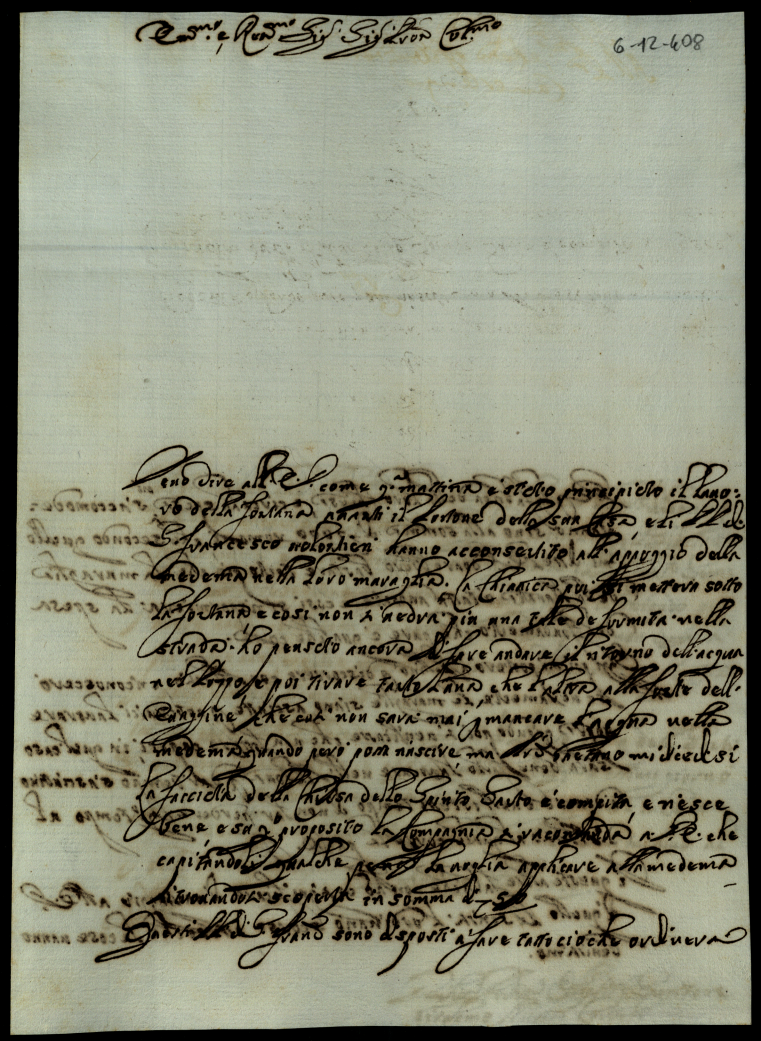 Em.mo e Rev.mo Sig.r Sig.r Pron Col.mo
6-12-608
Devo dire all' E. V. come q.ta mattina è stato principiato il lavo:
ro della fontana avanti il Portone della sua Casa e li PP. di
S. Francesco volontieri hanno acconsentito all' appoggio della
medema nella loro muraglia. La Chiavica poi si metteva sotto
la fontana e così non si vedra più una tale deformità nella
strada. Ho pensato ancora di fare andare il ritorno dell'acqua
nel pozzo e poi tirare tanto l'una che l'altra alla fonte dell'
che così non sarà mai p mancare l'acqua nella
medema quando però possa nascere ma Gaetano mi disse di si
La facciata della Chiesa dello Spirito Santo è compita e riesce
bene e su q.o proposito la Compagnia si raccomanda a V. E. che
capitandoli qualche pena la voglia applicare alla medema
ritrovandosi scoperta in somma di 50
Questi PP. di S. Franc.o sono disposti a fare tutto ciò che ordinerà